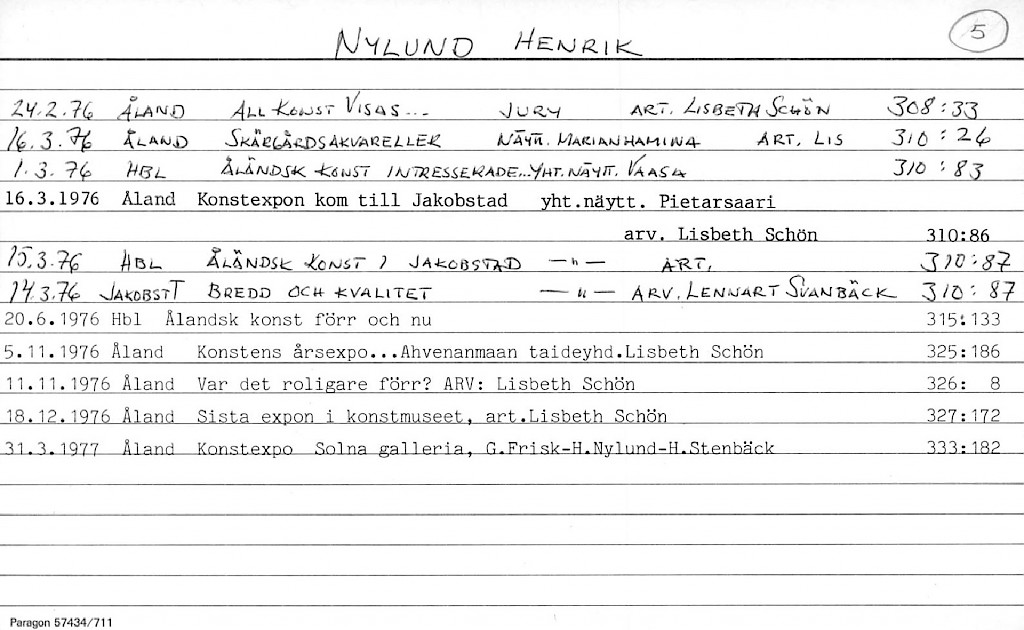 NYLUND HENRIK 5
24.2.76 ÅLAND ALL KONST VISAS... JURY ART. LISBETH SCHÖN 308:33
16.3.76 ÅLAND SKÄRGÅRDSAKVARELLER NÄYTT. MARIANHAMINA ART. LIS 310:26
1.3.76 HBL ÅLÄNDSK KONST INTRESSERADE...YHT.NÄYTT. VAASA 310:83
16.3.1976 Åland Konstexpon kom till Jakobstad yht.näytt. Pietarsaari
arv. Lisbeth Schön 310:86
15.3.76 HBL ÅLÄNDSK KONST I JAKOBSTAD —"— ART. 310:87
14.3.76 JAKOBST T BREDD OCH KVALITET —"— ARV. LENNART SVANBÄCK 310:87
20.6.1976 Hbl Ålandsk konst förr och nu 315:133
5.11.1976 Åland Konstens årsexpo...Ahvenanmaan taideyhd.Lisbeth Schön 325:186
11.11.1976 Åland Var det roligare förr? ARV: Lisbeth Schön 326: 8
18.12.1976 Åland Sista expon i konstmuseet, art.Lisbeth Schön 327:172
31.3.1977 Åland Konstexpo Solna galleria, G.Frisk-H.Nylund-H.Stenbäck 333:182
Paragon 57434/711